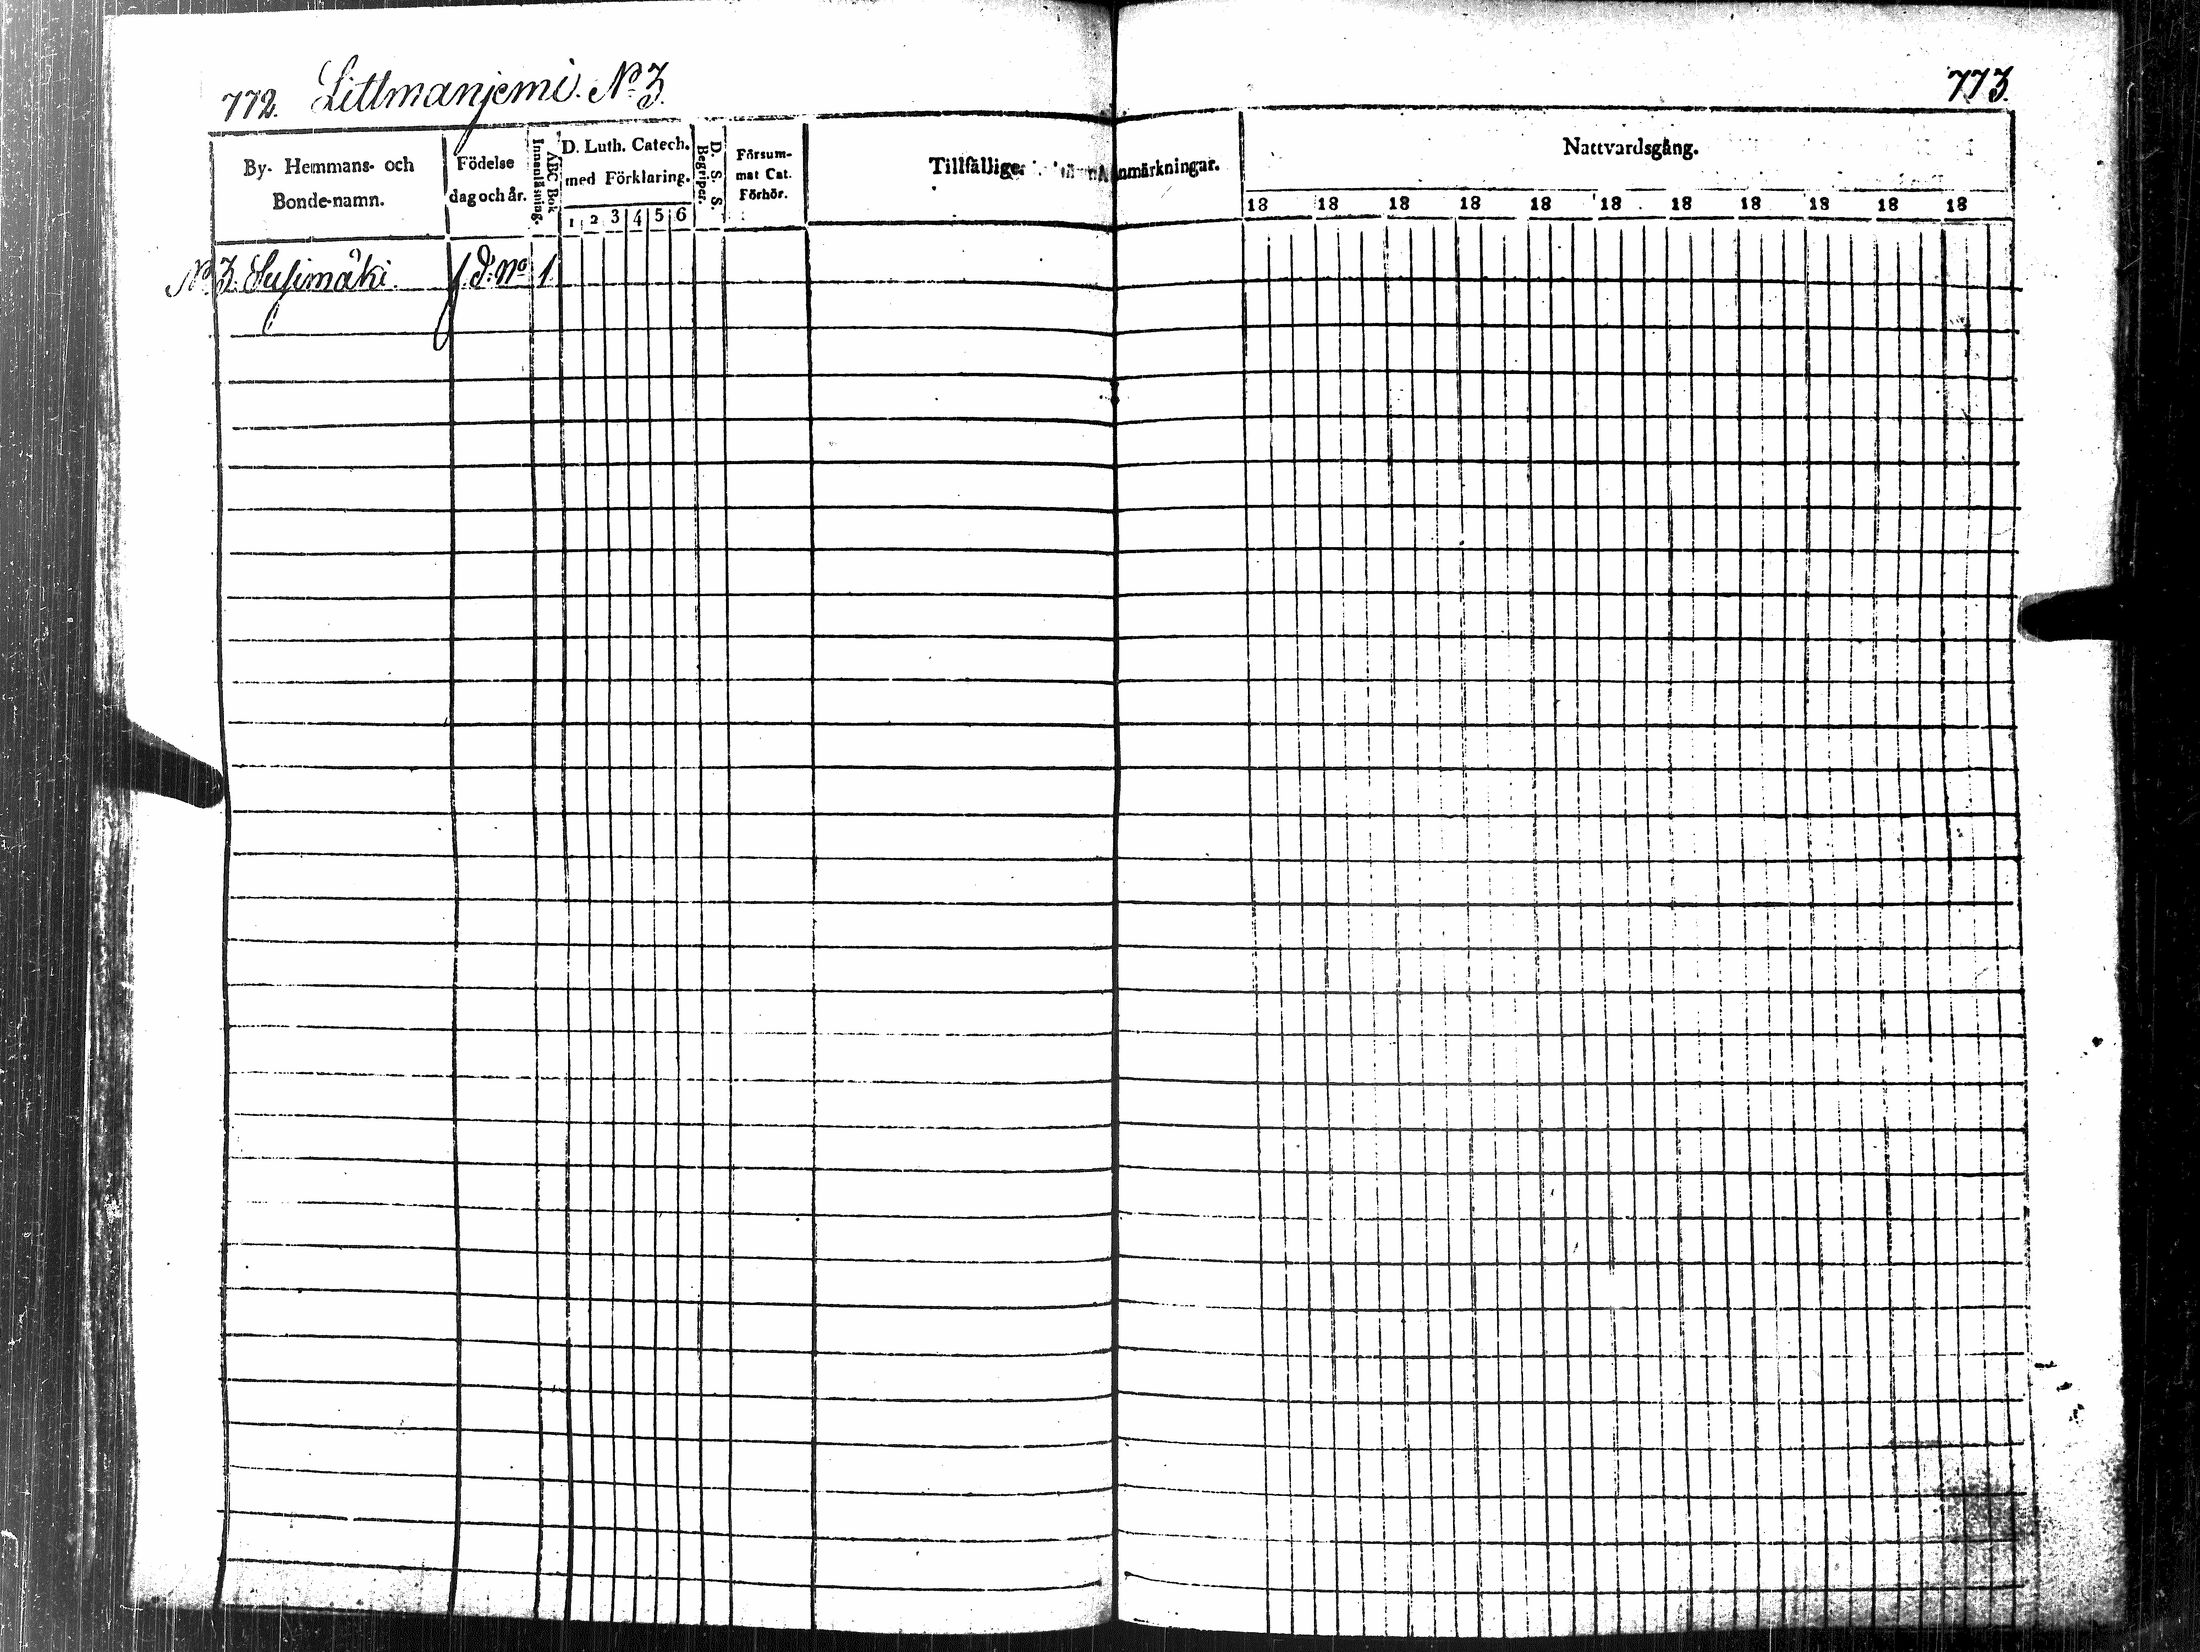 772. Littmanjemi. No 3.
773.
By- Hemmans- och
Bonde-namn.
Födelse
dag och år.
ABC Bok
Innanläsning.
D. Luth. Catech.
med Förklaring.
1 2 3 4 5 6
D. S. S.
Begriper.
Försum-
mat Cat.
Förhör.
Tillfällige Anmärkningar.
Nattvardsgång.
18 18 18 18 18 18 18 18 18 18 18
No 3. Susimäki. No 1